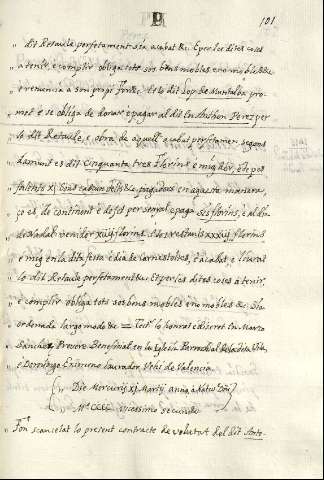 P 101
dit Retaule perfetament sia acabat &c. E per les dites coses
atenir, e complir obliga tots sos bens mobles e no mobles &c.
e renuncia a son propi for &c. Et lo dit Lop de Muntalba pro-
met e se obliga de donar e pagar al dit En Anthon Perez per
lo dit Retaule, e obra de aquell acabat perfetament segons
damunt es dit cinquanta tres florins e mig
 pagadors en aquesta manera
ço es, de continent e de fet per senyal e paga sis florins, e al dia
de Nadal venidor xiiij florins e los restants xxxiij florins
e mig en la dita festa e dia de Carnestoltes, e acabat e lliurat
lo dit Retaule perfetament &c. Et per les dites coses a tenir,
e complir obliga tots sos bens mobles e no mobles &c. Fia
ordenada largo modo &c. = Test. lo honrat e discret En March
Sanchez Prevere Beneficiat en la Iglesia Parrochial de la dita Vila
i Domingo Eximeno laurador Vehi de Valencia.
Die Mercurij xj Martij anno a Natev. Dñi
Mº CCCC vicessimo secundo
Fon cancelat lo present contracte de voluntat del dit Anto-